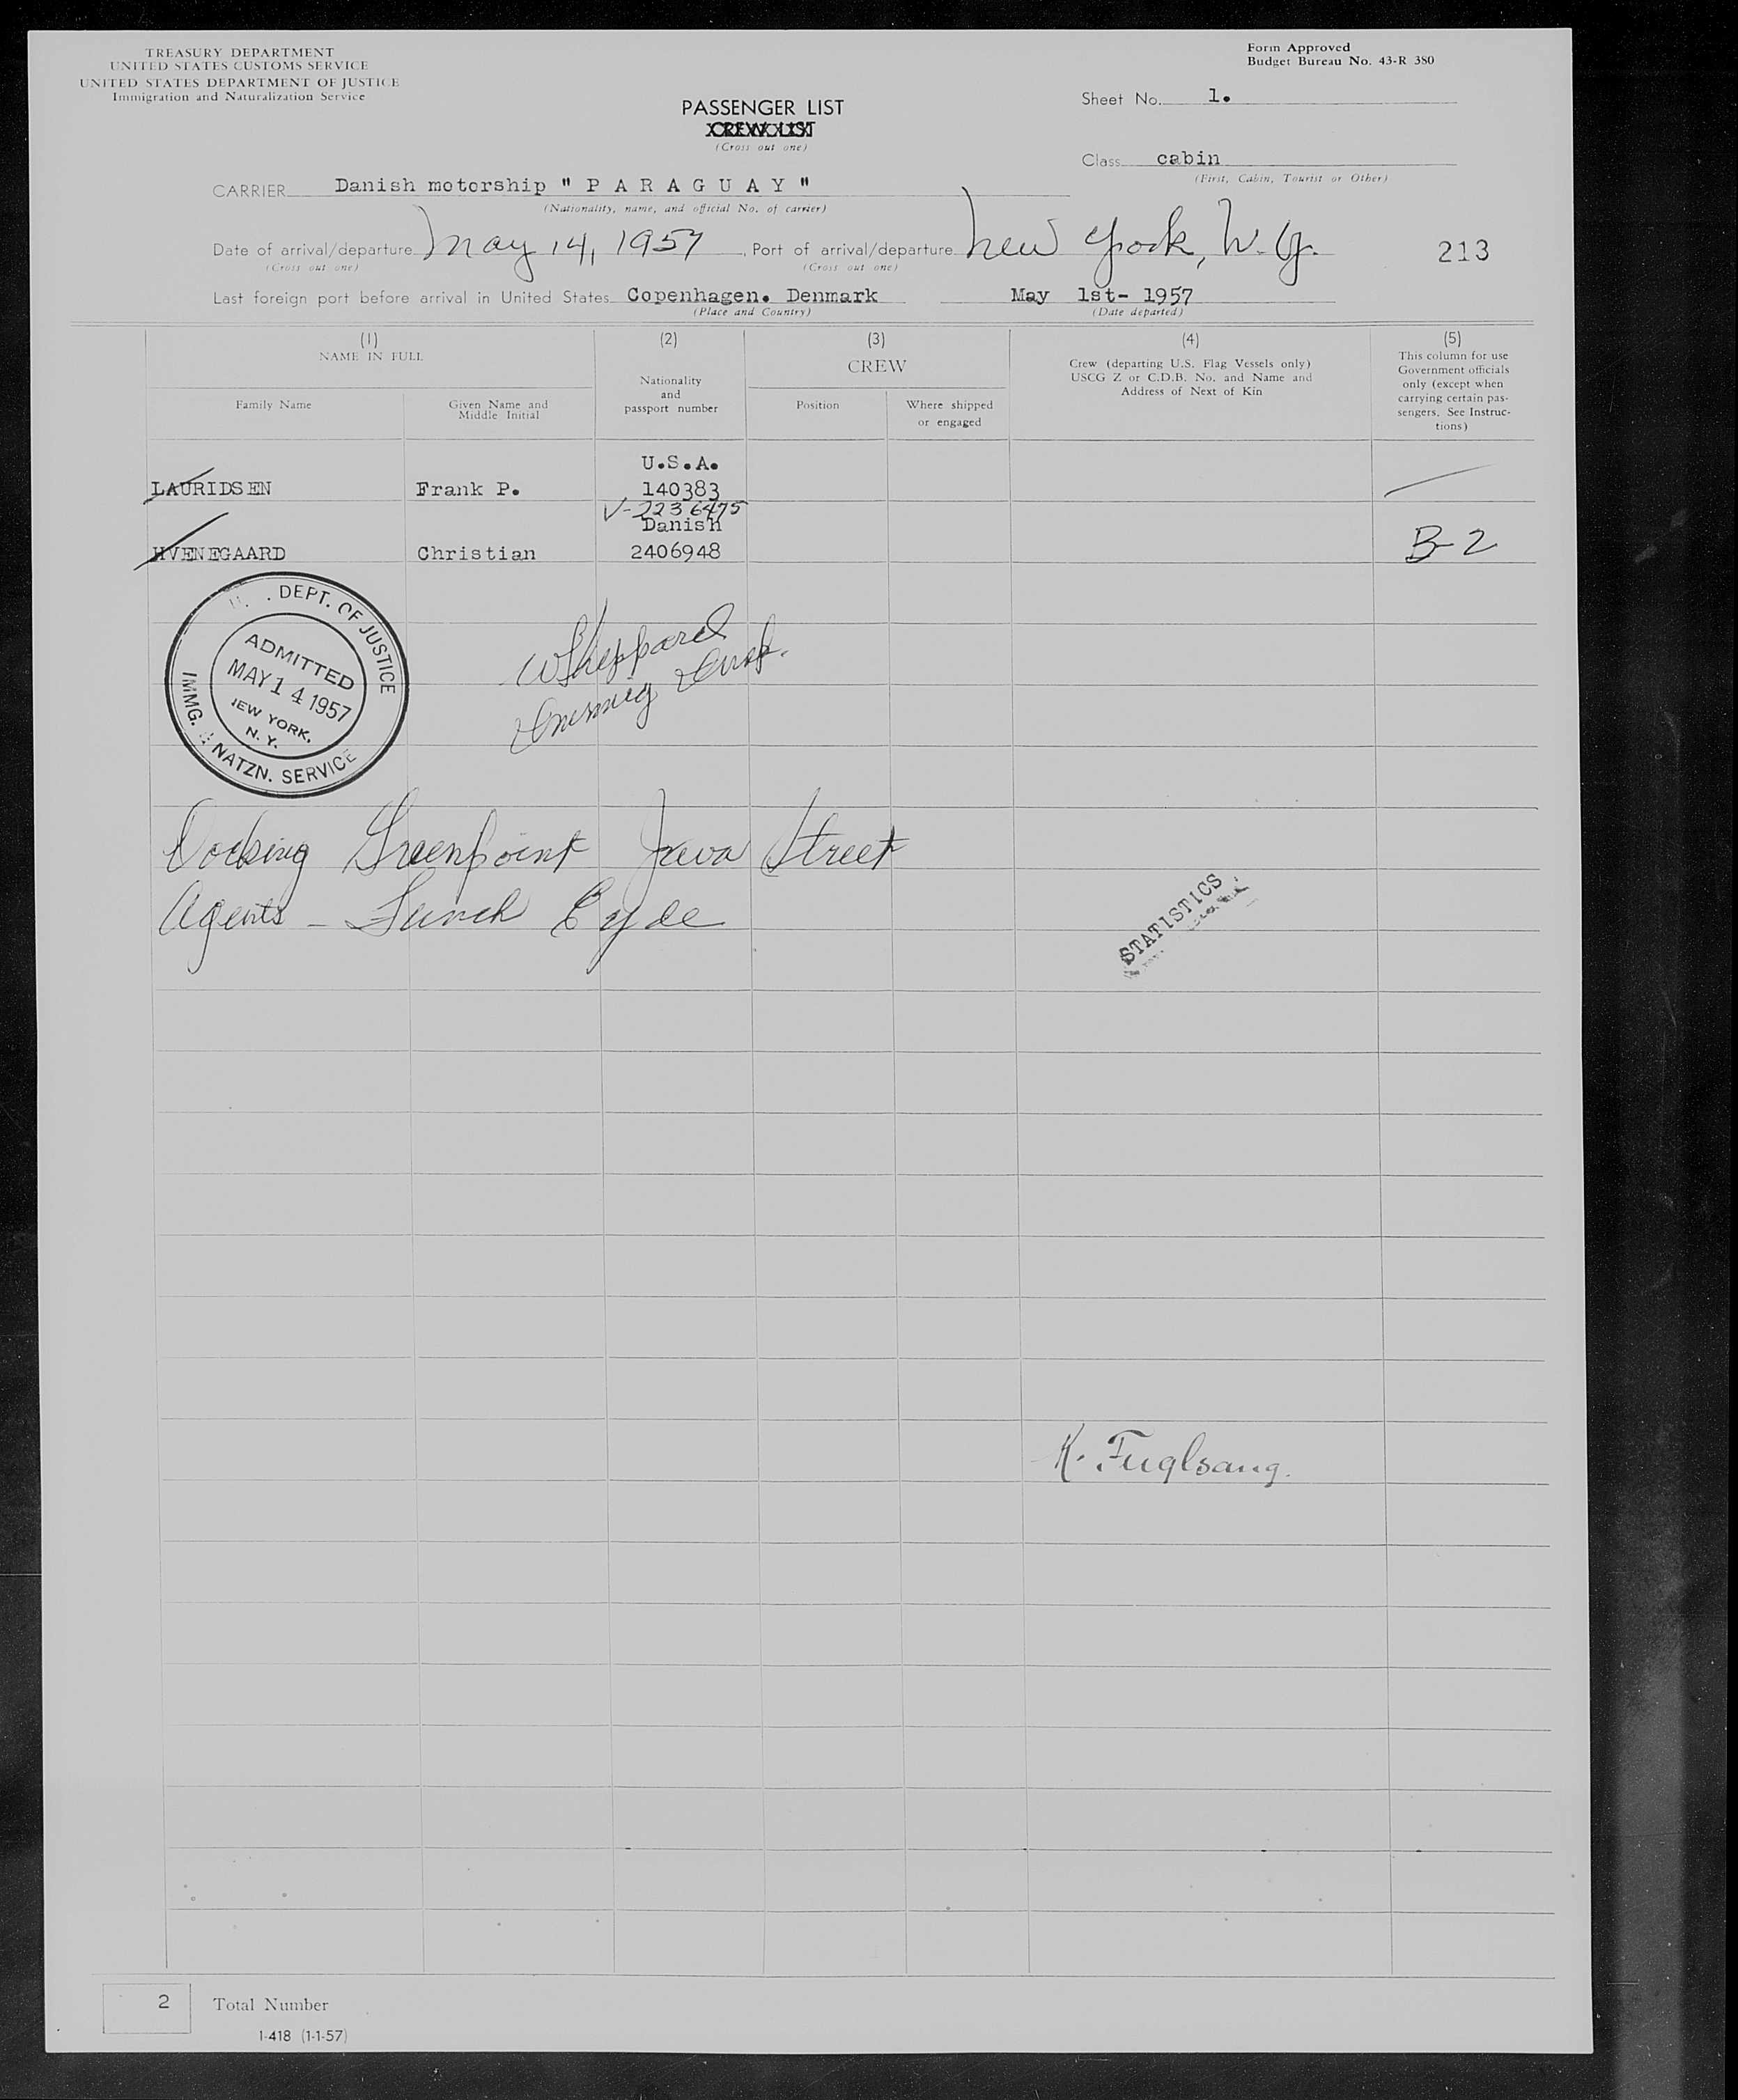 TREASURY DEPARTMENT
UNITED STATES CUSTOMS SERVICE
UNITED STATES DEPARTMENT OF JUSTICE
Immigration and Naturalization Service
Form Approved
Budget Bureau No. 43-R 380
PASSENGER LIST
CREW LIST
(Cross out one)
Sheet No. 1.
Class cabin
(First, Cabin, Tourist or Other)
CARRIER Danish motorship " P A R A G U A Y "
(Nationality, name, and official No. of carrier)
Date of arrival/departure May 14, 1957, Port of arrival/departure New York, N.Y.
(Cross out one) (Cross out one)
213
Last foreign port before arrival in United States Copenhagen. Denmark May 1st- 1957
(Place and Country) (Date departed)
(1) (2) (3) (4) (5)
NAME IN FULL
Family Name
Given Name and
Middle Initial
Nationality
and
passport number
CREW
Position
Where shipped
or engaged
Crew (departing U.S. Flag Vessels only)
USCG Z or C.D.B. No. and Name and
Address of Next of Kin
This column for use
Government officials
only (except when
carrying certain pas-
sengers. See Instruc-
tions)
U.S.A.
LAURIDSEN Frank P. 140383
V-2236475
Danish
HVENEGAARD Christian 2406948 B-2
DEPT. OF JUSTICE
ADMITTED
MAY 14 1957
NEW YORK,
N. Y.
IMMIG. & NATZN. SERVICE
WSheppard
Immig Insp.
Docking Greenpoint Java Street
Agents - Funch Eyde
STATISTICS
K. Fuglsang.
2 Total Number
I-418 (1-1-57)